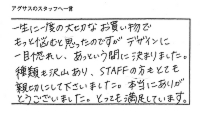 アグサスのスタッフへ一言
一生に一度の大切なお買い物で
もっと悩むと思ったのですがデザインに
一目惚れし、あっという間に決まりました。
種類も沢山あり、STAFFの方もとても
親切にして下さいました。本当にありが
とうございました。とっても満足しています。